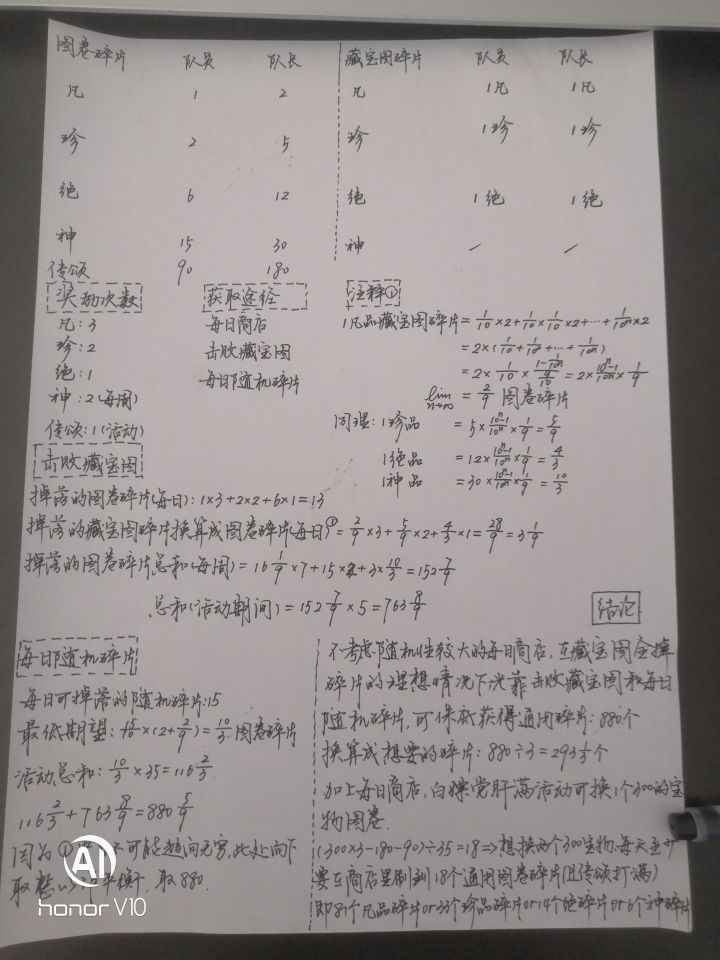 图卷碎片 队员 队长
凡 1 2
珍 2 5
绝 6 12
神 15 30
传颂 90 180
藏宝图碎片 队员 队长
凡 1凡 1凡
珍 1珍 1珍
绝 1绝 1绝
神 / /
奖励次数
凡:3
珍:2
绝:1
神:2(每周)
传颂:1(活动)
获取途径
每日商店
击败藏宝图
每日随机碎片
注释①
1凡品藏宝图碎片=1/10×2+1/10×1/10×2+…+1/10ⁿ×2
=2×(1/10+1/10²+…+1/10ⁿ)
=2×1/10×(1-1/10ⁿ)/(9/10)=2×(10ⁿ-1)/10ⁿ×1/9
lim n→∞ =2/9 图卷碎片
同理:1珍品 =5×(10ⁿ-1)/10ⁿ×1/9=5/9
1绝品 =12×(10ⁿ-1)/10ⁿ×1/9=4/3
1神品 =30×(10ⁿ-1)/10ⁿ×1/9=10/3
击败藏宝图
掉落的图卷碎片(每日):1×3+2×2+6×1=13
掉落的藏宝图碎片换算成图卷碎片(每日)①=2/9×3+5/9×2+4/3×1=28/9=3 1/9
掉落的图卷碎片总和(每周)=16 1/9×7+15×2+3×10/3=152 7/9
总和(活动期间)=152 7/9×5=763 8/9
每日随机碎片
每日可掉落的随机碎片:15
最低期望:×(2+2/9)=10/3图卷碎片
活动总和:10/3×35=116 2/3
116 2/3+763 8/9=880 5/9
因为①不可能趋向无穷,此处向下
取整平衡,取880.
结论
不考虑随机性较大的每日商店,在藏宝图全掉
碎片的理想情况下光靠击败藏宝图和每日
随机碎片,可保底获得通用碎片:880个
换算成想要的碎片:880÷3=293⅓个
加上每日商店,白嫖党肝满活动可换1个300的宝
物图卷.
(300×3-180-90)÷35=18⇒想换两个300宝物,每天至少
要在商店里刷到18个通用图卷碎片(且传颂打满)
即81个凡品碎片or33个珍品碎片or14个绝碎片or6个神碎片
AI
honor V10